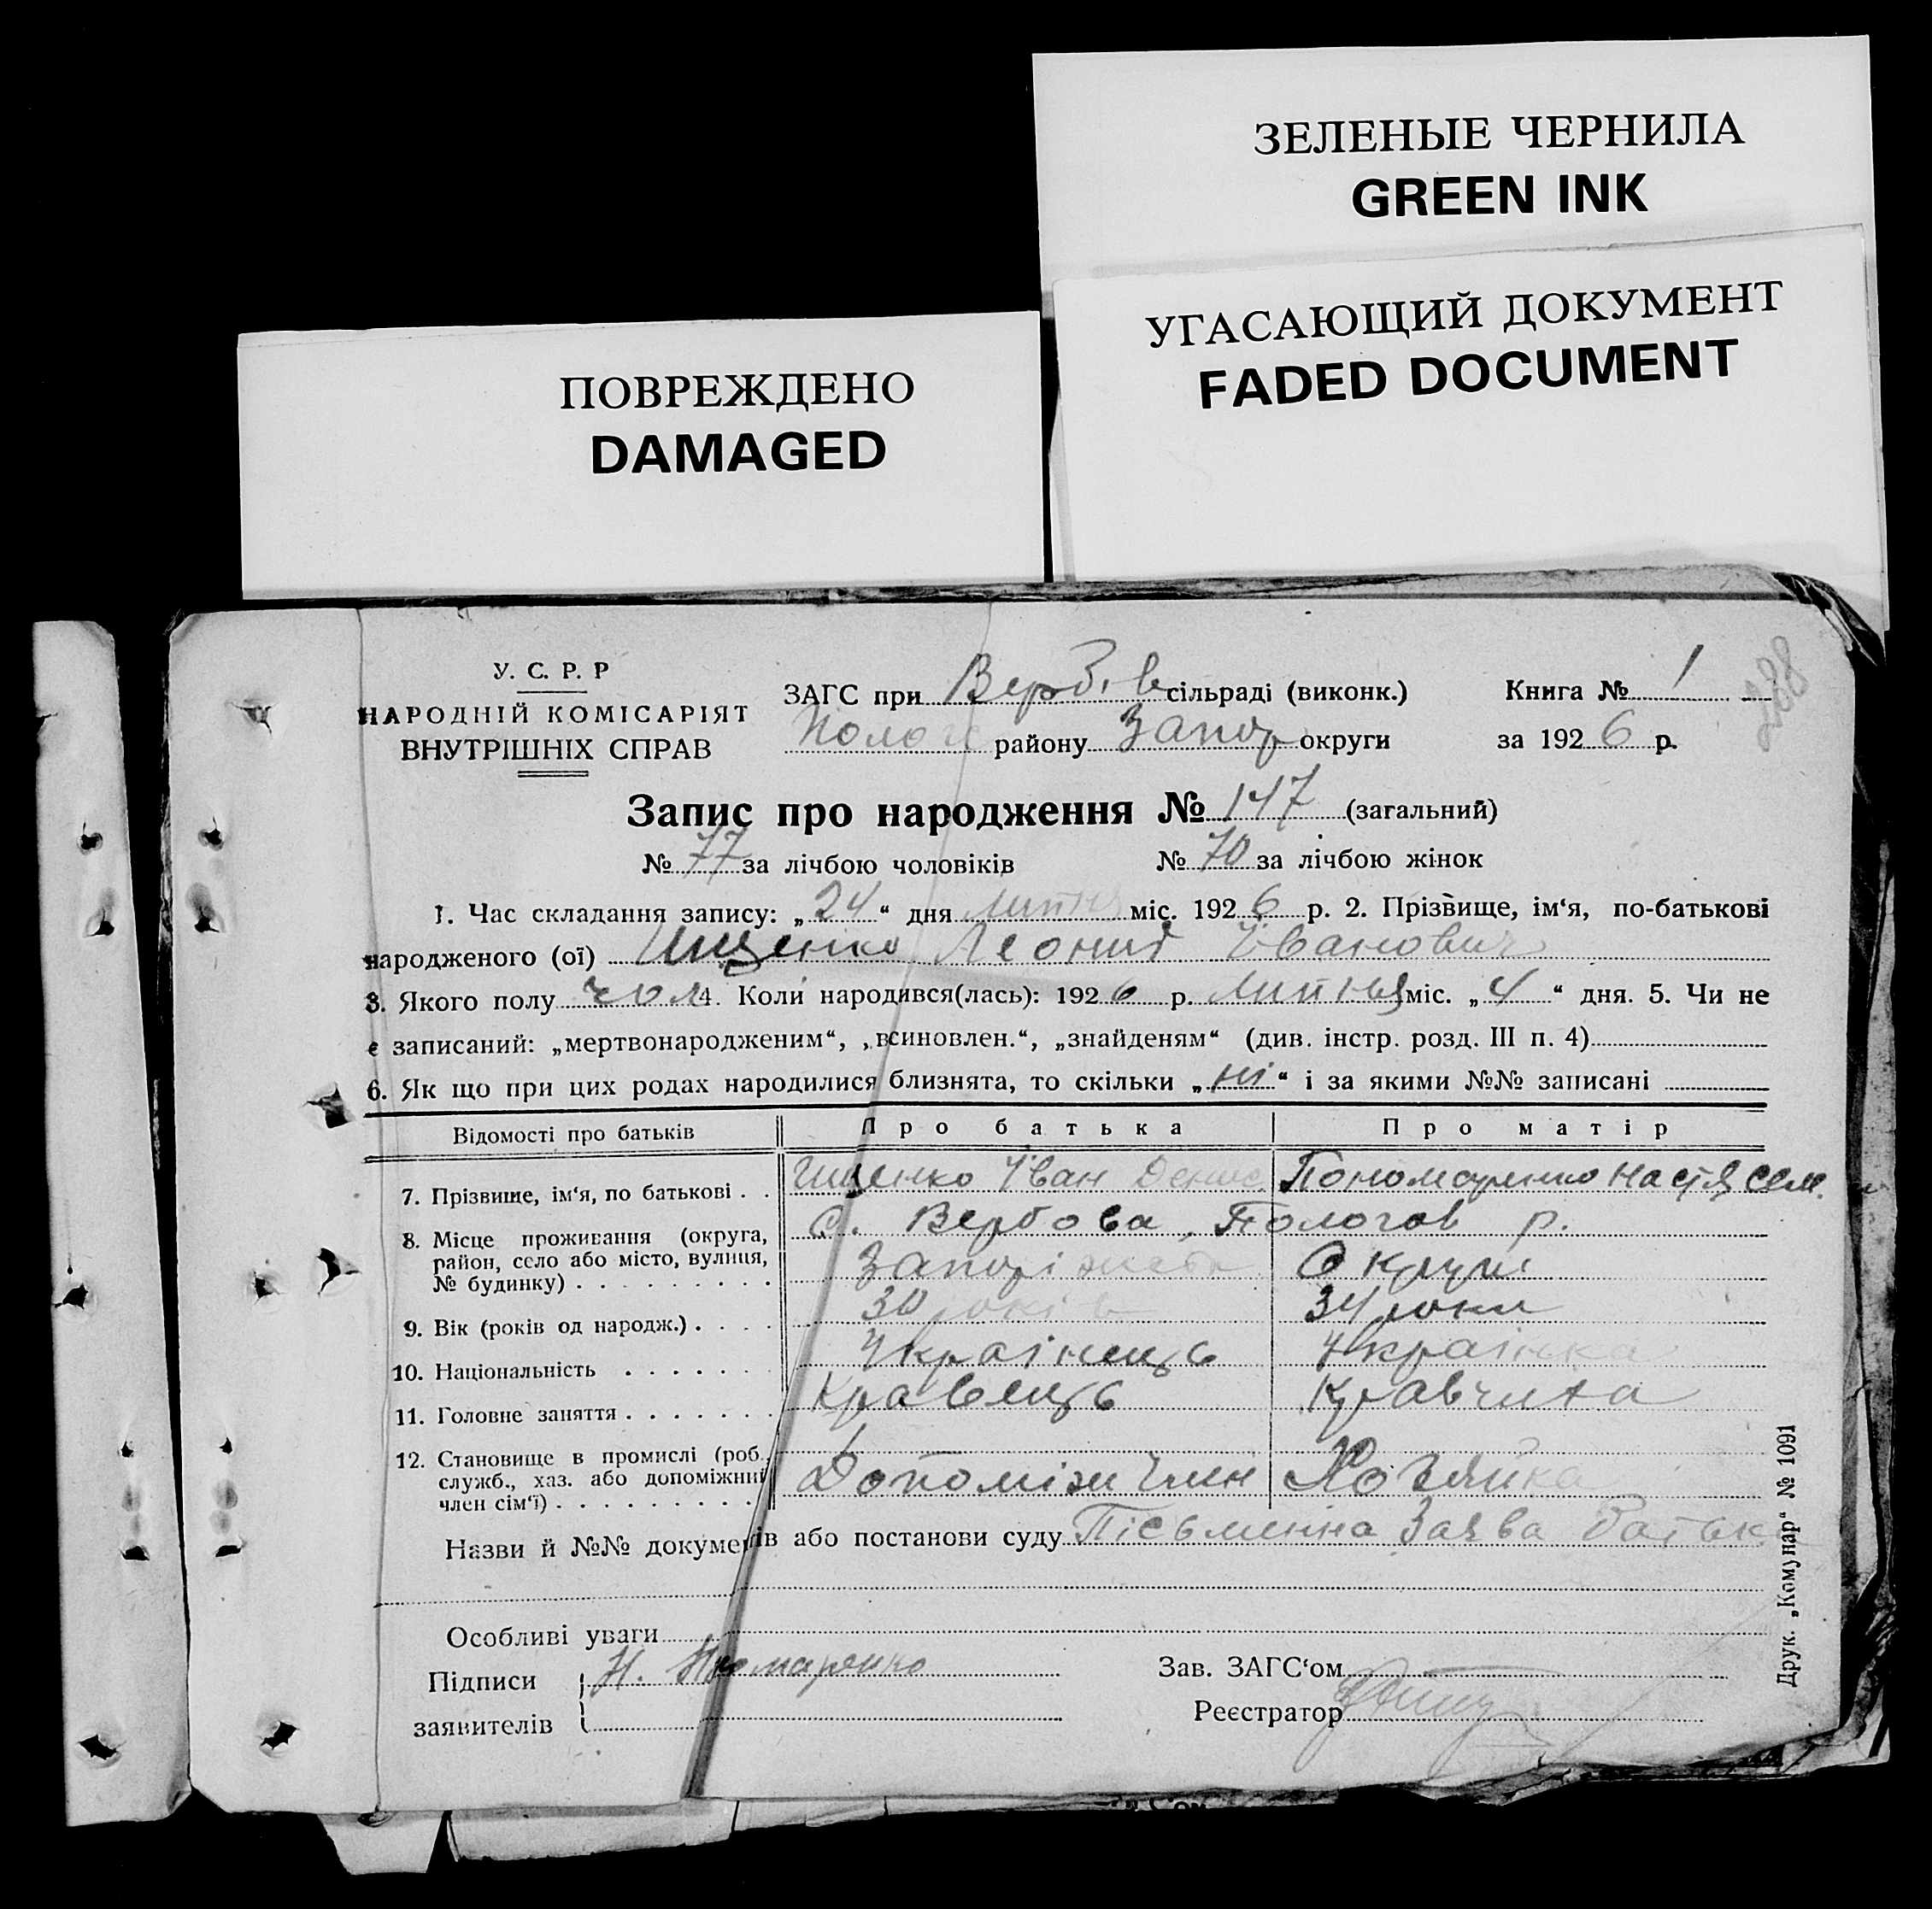 ЗЕЛЕНЫЕ ЧЕРНИЛА
GREEN INK
УГАСАЮЩИЙ ДОКУМЕНТ
FADED DOCUMENT
ПОВРЕЖДЕНО
DAMAGED
288
У. С. Р. Р
НАРОДНІЙ КОМІСАРІЯТ
ВНУТРІШНІХ СПРАВ
ЗАГС при Вербів сільраді (виконк.) Книга № 1
Полог району Запор округи за 1926 р.
Запис про народження № 147 (загальний)
№ 77 за лічбою чоловіків № 70 за лічбою жінок
1. Час складання запису: „24“ дня липня міс. 1926 р. 2. Прізвище, ім‘я, по-батькові
народженого (ої) Ищенко Леонид Іванович
3. Якого полу чол 4. Коли народився(лась): 1926 р. липня міс. „4“ дня. 5. Чи не
є записаний: „мертвонародженим“, „всиновлен.“, „знайденям“ (див. інстр. розд. III п. 4)
6. Як що при цих родах народилися близнята, то скільки „ні“ і за якими №№ записані
Відомості про батьків Про батька Про матір
7. Прізвище, ім‘я, по батькові . . Ищенко Іван Денис Пономаренко Настя Сем.
8. Місце проживання (округа, район, село або місто, вулиця, № будинку) . . . . . . . . . С. Вербова, Пологов р.
Запоріжськ Округи
9. Вік (років од народж.) . . . . 30 років 34 роки
10. Національність . . . . . . . Українець Українка
11. Головне заняття . . . . . . . Кравець Кравчиха
12. Становище в промислі (роб. служб., хаз. або допоміжний член сім‘ї) . . . . . . . . . Допоміжн член Хозяйка
Назви й №№ документів або постанови суду Пісьменна Заява батька
Особливі уваги
Підписи Н. Пономаренко Зав. ЗАГС‘ом
заявителів Реєстратор
Друк. „Комунар“ № 1091